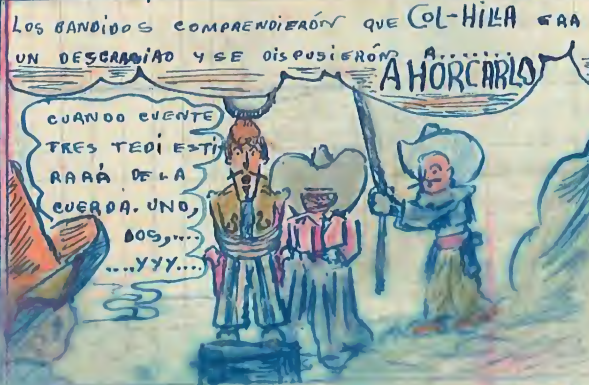 LOS BANDIDOS COMPRENDIERÓN QUE COL-HILLA ERA
UN DESGRASIAO Y SE DISPUSIERÓN A........
AHORCARLO
CUANDO CUENTE
TRES TEDI ESTI
RARÁ DE LA
CUERDA. UNO,
DOS,....
....YYY....